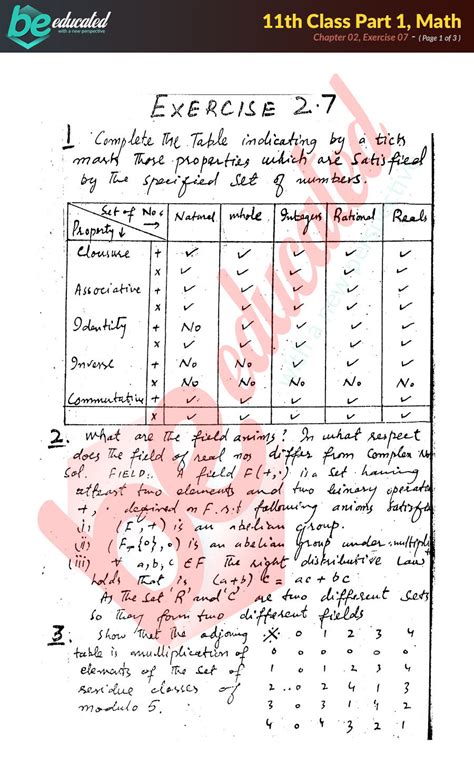 be educated
with a new perspective
11th Class Part 1, Math
Chapter 02, Exercise 07 - ( Page 1 of 3 )
EXERCISE 2.7
1 Complete The Table indicating by a tick
mark Those properties which are satisfied
by The specified set of numbers.
Set of No.s → Natural whole Integers Rational Reals
Property ↓
Clousure + ✓ ✓ ✓ ✓ ✓
x ✓ ✓ ✓ ✓ ✓
Associative + ✓ ✓ ✓ ✓ ✓
x ✓ ✓ ✓ ✓ ✓
Identity + No ✓ ✓ ✓ ✓
x ✓ ✓ ✓ ✓ ✓
Inverse + No No ✓ ✓ ✓
x No No No No No
Commutative + ✓ ✓ ✓ ✓ ✓
x ✓ ✓ ✓ ✓ ✓
2. What are the field axioms? In what respect
does the field of real nos differ from complex No
Sol. FIELD:. A field F(+,·) is a set having
atleast two elements and two binary operate
+, · defined on F. s.t following axioms satisfie
i) (F, +) is an abelian group.
(ii) (F-{0}, ·) is an abelian group under multipli
(iii) ∀ a, b, c ∈ F The right distributive law
holds That is (a+b) c = ac + bc
As The set 'R' and 'C' are two different sets
So they form two different fields
3. Show that the adjoing · X · 0 1 2 3 4
table is multiplication of 0 0 0 0 0 0
elements of the set of 1 0 1 2 3 4
residue classes of 2 0 2 4 1 3
modulo 5. 3 0 3 1 4 2
4 0 4 3 2 1
be educated